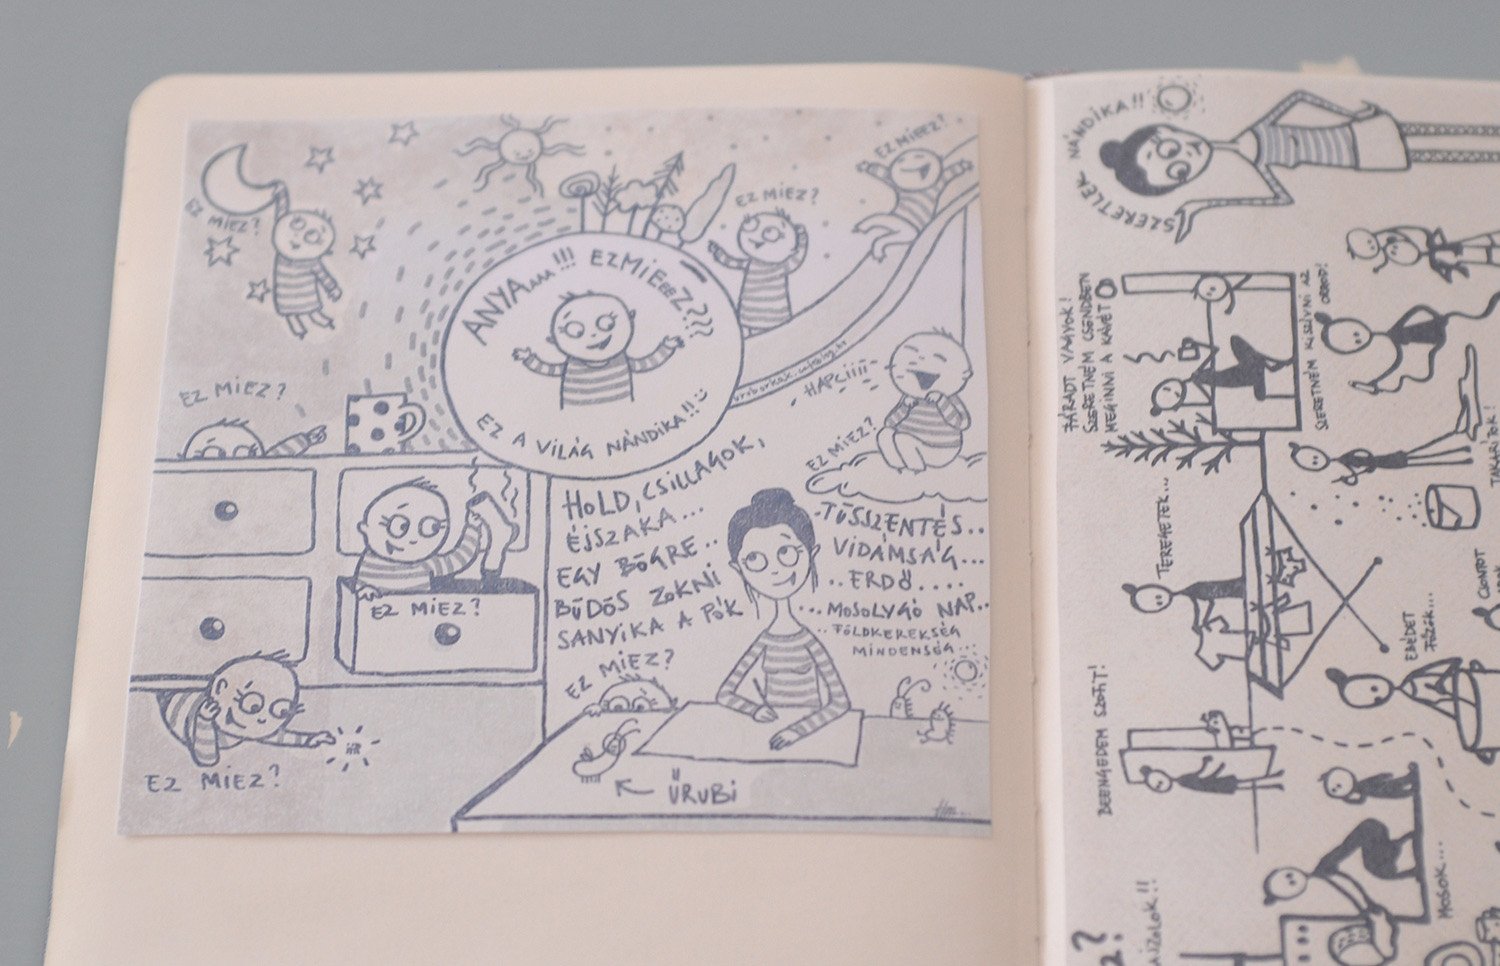 EZ MIEZ?
EZ MIEZ?
EZ MIEEZ?
ANYAaaa!!! EZMIEeeZ???
EZ A VILÁG NÁNDIKA!!
HAPCIIII
EZ MIEZ?
EZ MIEZ?
EZ MIEZ?
EZ MIEZ?
HOLD, CSILLAGOK,
ÉJSZAKA...
EGY BÖGRE..
BŰDÖS ZOKNI
SANYIKA A PÓK
EZ MIEZ?
.TÜSSZENTÉS..
VIDÁMSÁG...
..ERDŐ....
...MOSOLYGÓ NAP..
..FÖLDKEREKSÉG
MINDENSÉG..
ŰRUBI
SZERETLEK NÁNDIKA!!
FÁRADT VAGYOK!
SZERETNÉM CSENDBEN
MEGINNI A KÁVÉT
SZERETNÉM KISÍVNI AZ
OROD!
TAKARÍTOK!
TEREGETEK...
EBÉDET
FŐZÖK...
CIONTOT
BEENGEDEM SZOFIT!
MOSOK...